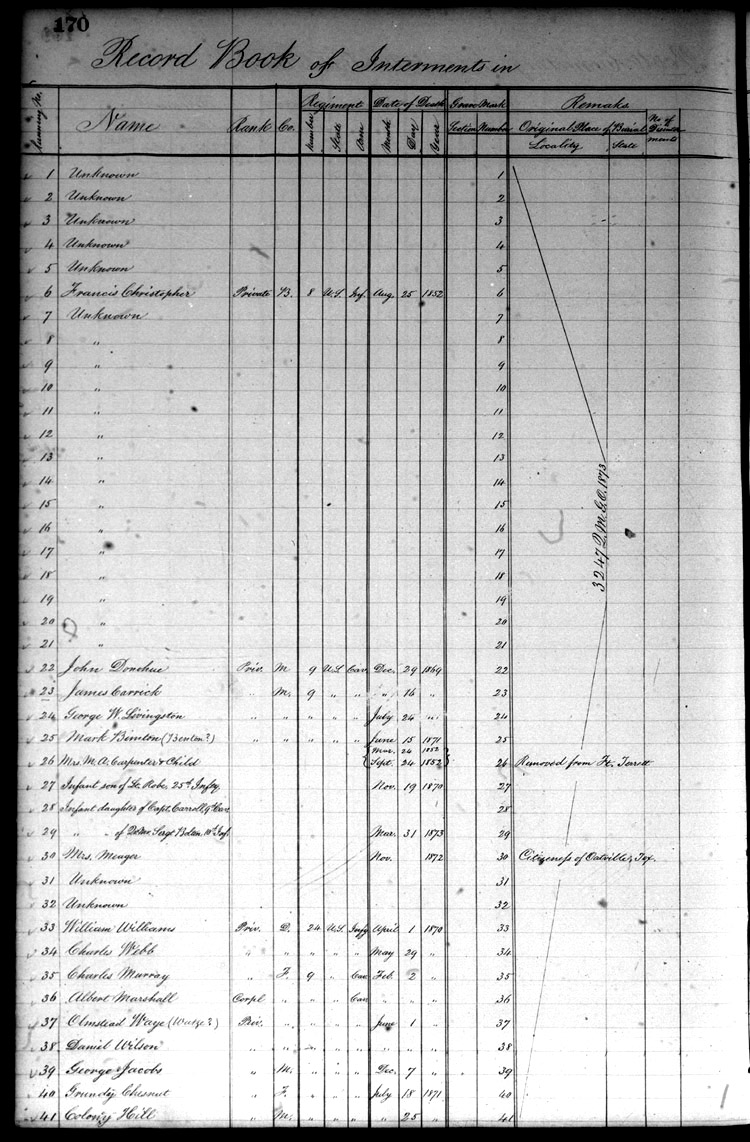 170
Record Book of Interments in
Running No. Name Rank Co. Regiment Date of Death Grave Mark Remaks
Number State Arm Month Day Year Section Number Original Place of Burial No. of Disinterments
Locality State
1 Unknown 1
2 Unknown 2
3 Unknown 3
4 Unknown 4
5 Unknown 5
6 Francis Christopher Private B. 8 U.S. Inf. Aug. 25 1852 6
7 Unknown 7
8 " 8
9 " 9
10 " 10
11 " 11
12 " 12
13 " 13
14 " 14
15 " 15
16 " 16
17 " 17
18 " 18
19 " 19
20 " 20
21 " 21
3247 Q.M.G.O. 1873
22 John Donohue Priv. M 9 U.S. Cav. Dec. 29 1869 22
23 James Carrick " M. 9 " " " 16 " 23
24 George W. Livingston " " " " " July 24 " 24
25 Mark Binton (Benton?) " " " " " June 15 1871 25
Mar. 24 1852
26 Mrs. M. A. Carpenter & Child Sept. 24 1852 26 Removed from Ft. Terrett
27 Infant son of Lt. Robe, 25th Infty. Nov. 19 1870 27
28 Infant daughter of Capt. Carroll, 9th Cav. 28
29 " " of Sergt. 10th Inf. Mar. 31 1873 29
30 Mrs. Menger Nov. 1872 30 Citizeness of Oatville, Tex.
31 Unknown 31
32 Unknown 32
33 William Williams Priv. D. 24 U.S. Infy April 1 1870 33
34 Charles Webb " " " " " May 29 " 34
35 Charles Murray " F. 9 " Cav. Feb. 2 " 35
36 Albert Marshall Corpl " " " Cav " " " 36
37 Olmstead Waye (Watge?) Priv. " " " " June 1 " 37
38 Daniel Wilson " " " " " " " " 38
39 George Jacobs " M. " " " Dec. 7 " 39
40 Grundy Chesnut " F. " " " July 18 1871 40
41 Colony Hill " M. " " " " 25 " 41